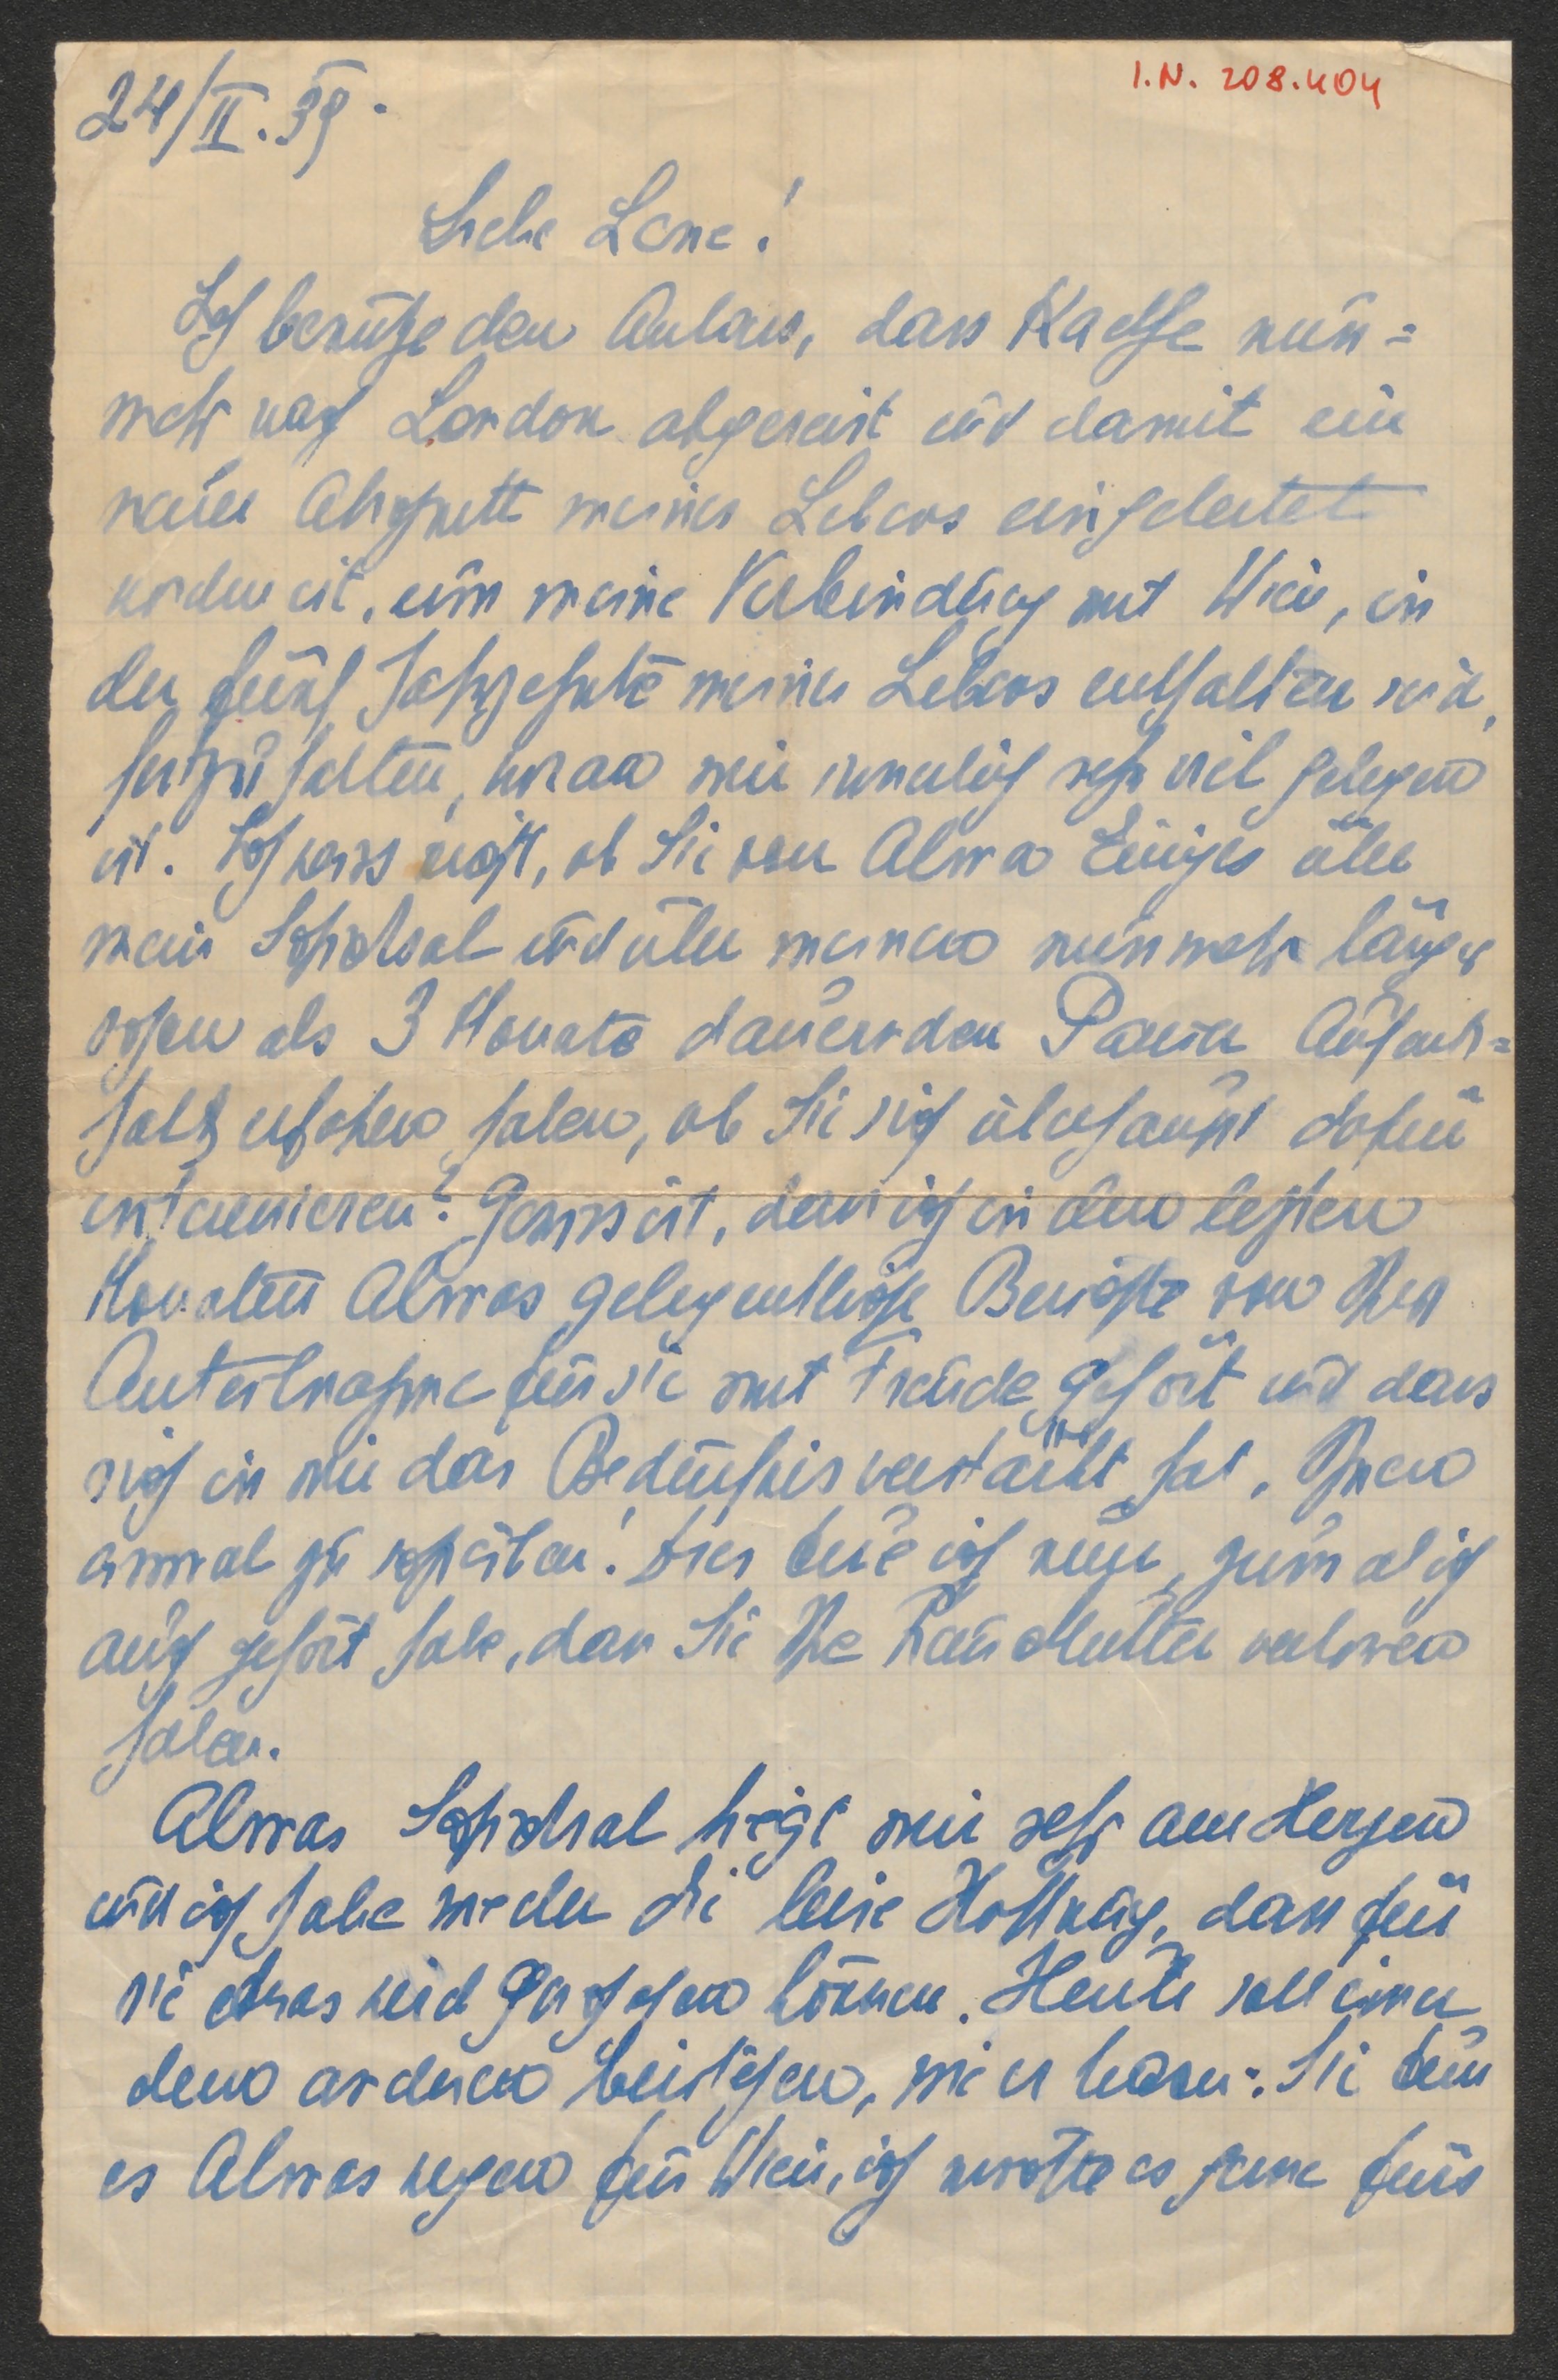 I.N. 208.404
24/II.39.
Liebe Lene!
Ich benütze den Anlass, dass Kaethe nun=
mehr nach London abgereist und damit ein
neuer Abschnitt meines Lebens eingeleitet
worden ist, um meine Verbindung mit Wien, in
der fünf Jahrzehnte meines Lebens enthalten sind,
festzuhalten, woran mir innerlich sehr viel gelegen
ist. Ich weiss nicht, ob Sie von Alma Einiges über
mein Schicksal und über meinen nunmehr länger
schon als 3 Monate dauernden Pariser Aufent=
halt erfahren haben, ob Sie sich überhaupt dafür
interessieren? Gewiss ist, dass ich in den letzten
Monaten Almas gelegentliche Berichte von Ihrer
Anteilnahme für sie mit Freude gehört und dass
sich in mir das Bedürfnis verstärkt hat, Ihnen
einmal zu schreiben! Dies tue ich nun, zumal ich
auch gehört habe, dass Sie Ihre Frau Mutter verloren
haben.
Almas Schicksal liegt mir sehr am Herzen
und ich habe wieder die leise Hoffnung, dass für
sie etwas wird geschehen können. Heute soll einer
dem anderen beistehen, wie er kann: Sie tun
es Almas wegen für Wien, ich möchte es gerne fürs